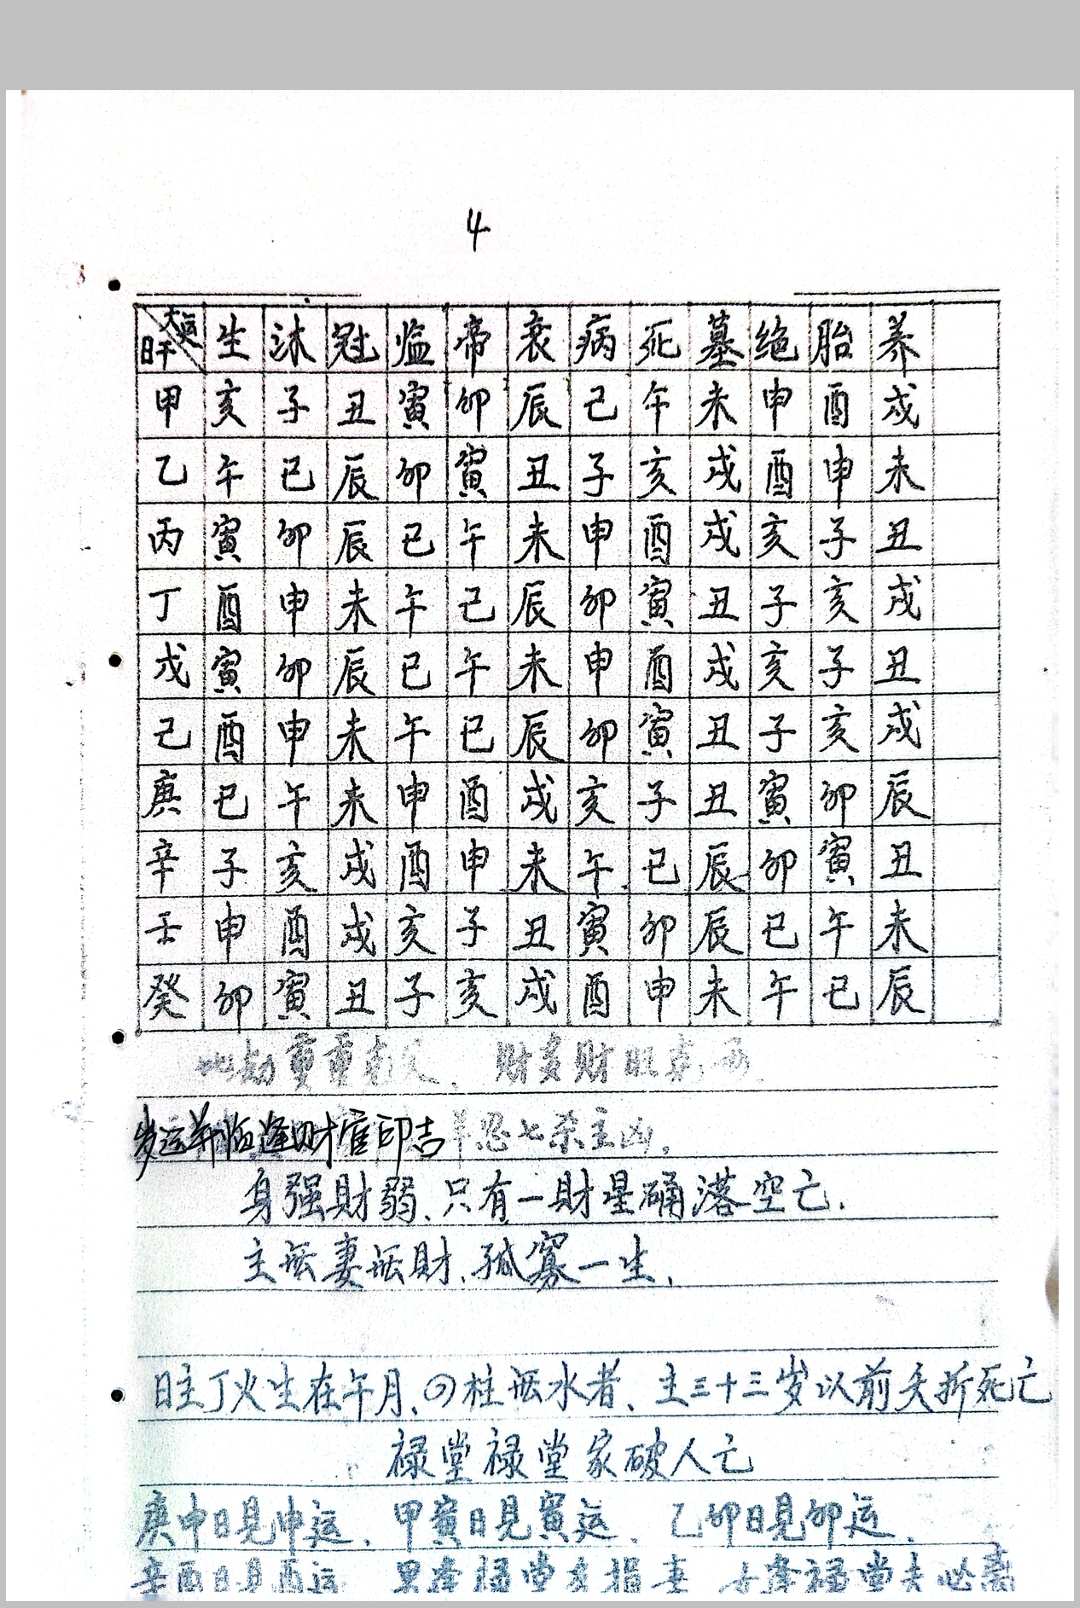 4
大运 日干 生 沐 冠 临 帝 衰 病 死 墓 绝 胎 养
甲 亥 子 丑 寅 卯 辰 己 午 未 申 酉 戌
乙 午 巳 辰 卯 寅 丑 子 亥 戌 酉 申 未
丙 寅 卯 辰 已 午 未 申 酉 戌 亥 子 丑
丁 酉 申 未 午 己 辰 卯 寅 丑 子 亥 戌
戊 寅 卯 辰 巳 午 未 申 酉 戌 亥 子 丑
己 酉 申 未 午 巳 辰 卯 寅 丑 子 亥 戌
庚 巳 午 未 申 酉 戌 亥 子 丑 寅 卯 辰
辛 子 亥 戌 酉 申 未 午 巳 辰 卯 寅 丑
壬 申 酉 戌 亥 子 丑 寅 卯 辰 巳 午 未
癸 卯 寅 丑 子 亥 戌 酉 申 未 午 巳 辰
劫重重克父、財多財旺克母
岁运并临逢财官印吉羊忍七杀主凶。
身强財弱、只有一財星确落空亡.
主妻財、孤寡一生、
日主丁火生在午月、四柱水者、主三十三岁以前夭折死亡
禄堂禄堂家破人亡
庚申日見申运、甲寅日見寅运、乙卯日見卯运、
辛酉日見酉运 男逢禄堂女損妻 女逢禄堂夫必离